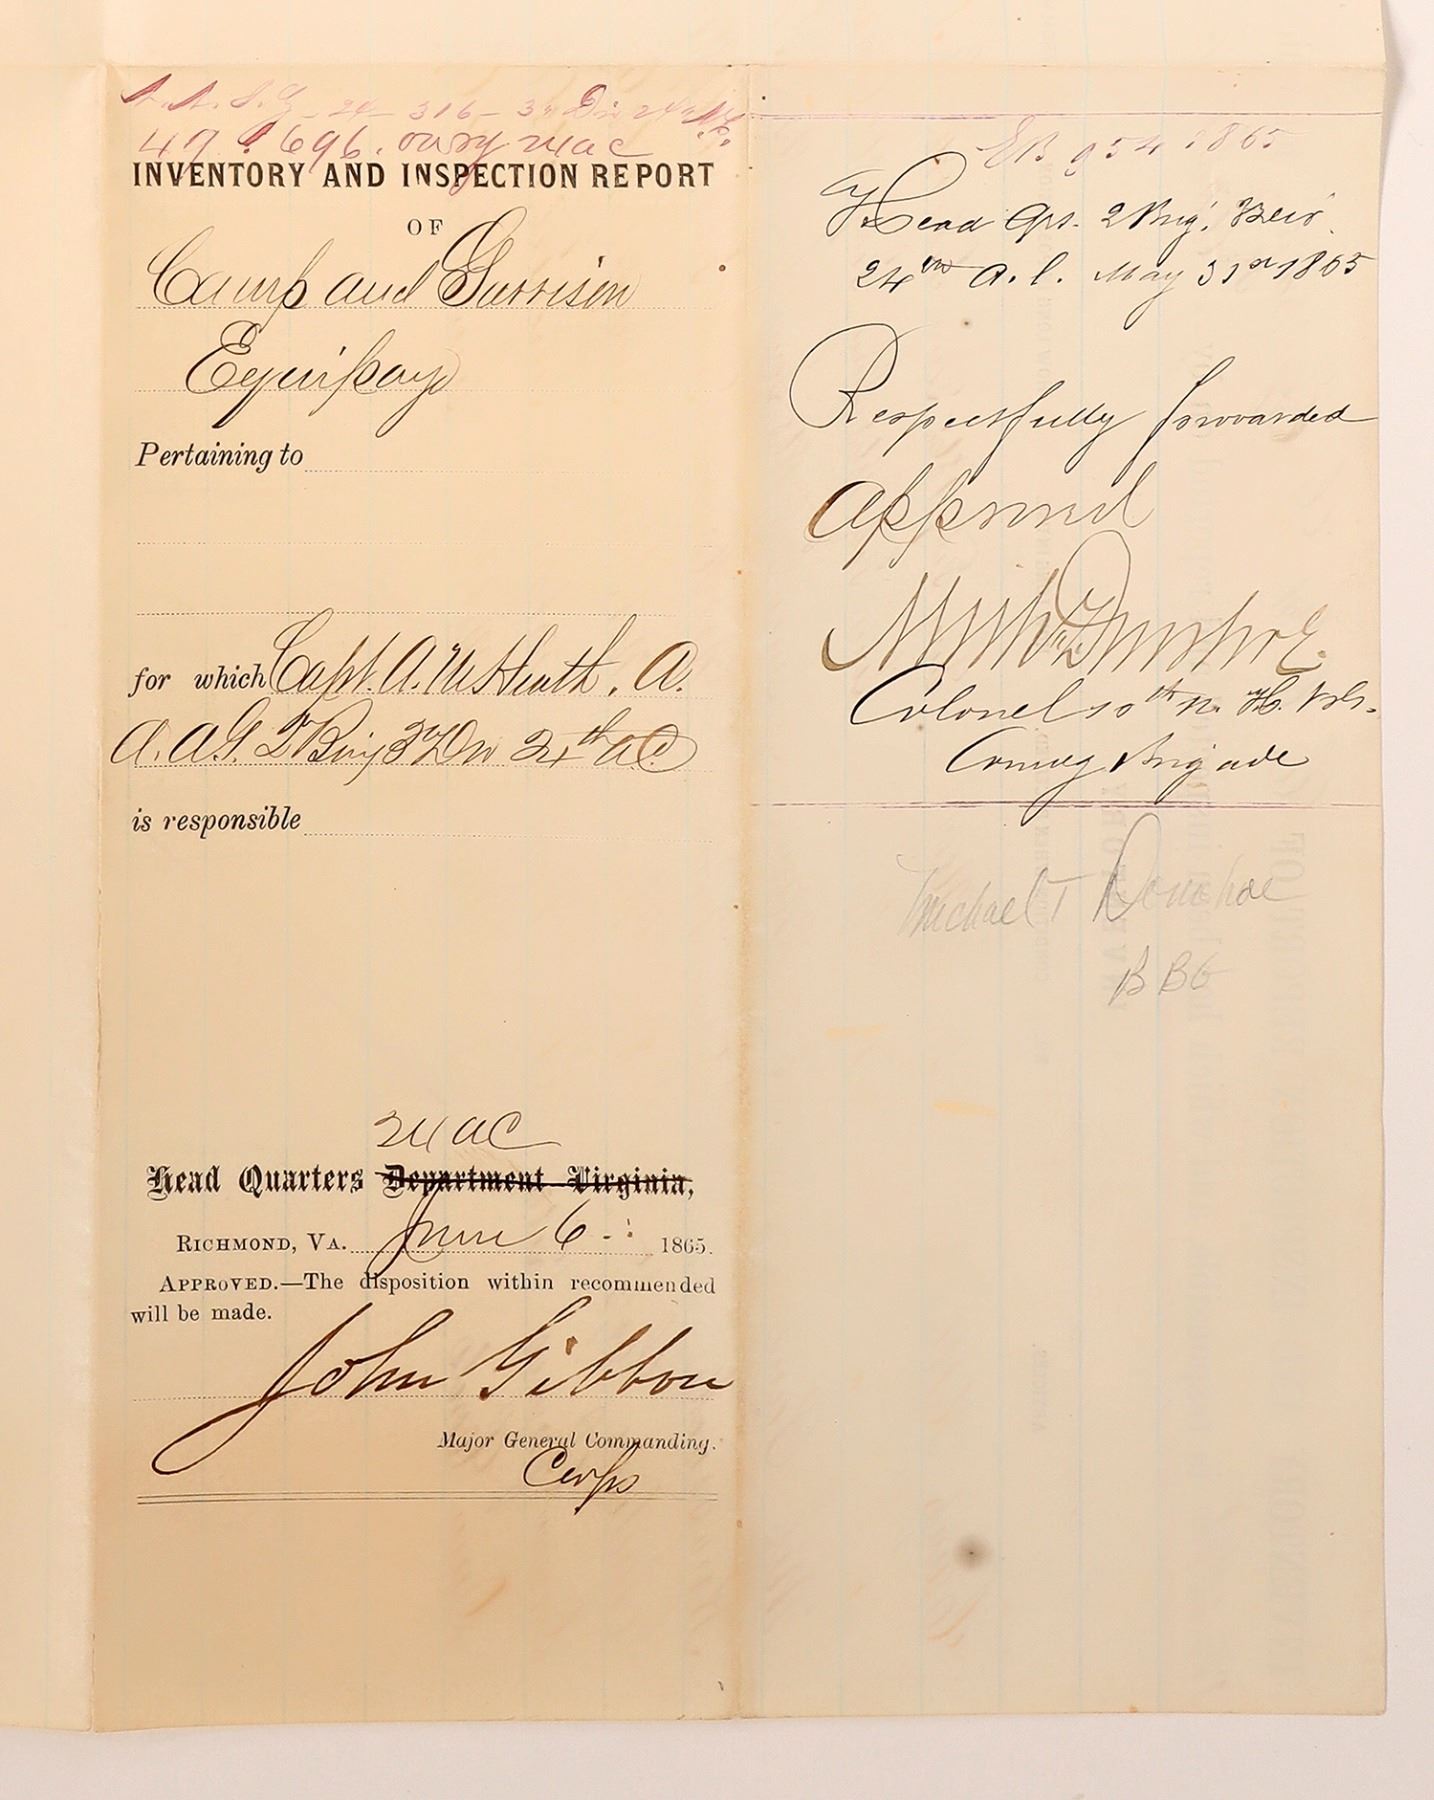 A. A. I. G. 24 - 316 - 3" Div 24" A.C.
47. 696. 24 AC
INVENTORY AND INSPECTION REPORT
OF
Camp and Garrison
Equipage
Pertaining to
for which Capt. A. M. Heath, A.
A. A. G. 2" Brig 3" Div 24th A.C.
is responsible
24 AC
Head Quarters Department Virginia,
RICHMOND, VA. June 6 1865.
APPROVED.—The disposition within recommended
will be made.
John Gibbon
Major General Commanding.
Corps
EB 954 1865
Head Qrs. 2 Brig. 3 Div.
24th A. C. May 31st 1865
Respectfully forwarded
Approved
Mich T Donohoe
Colonel 10th N. H. Vols.
Comdg Brigade
Michael T Donohoe
B B G